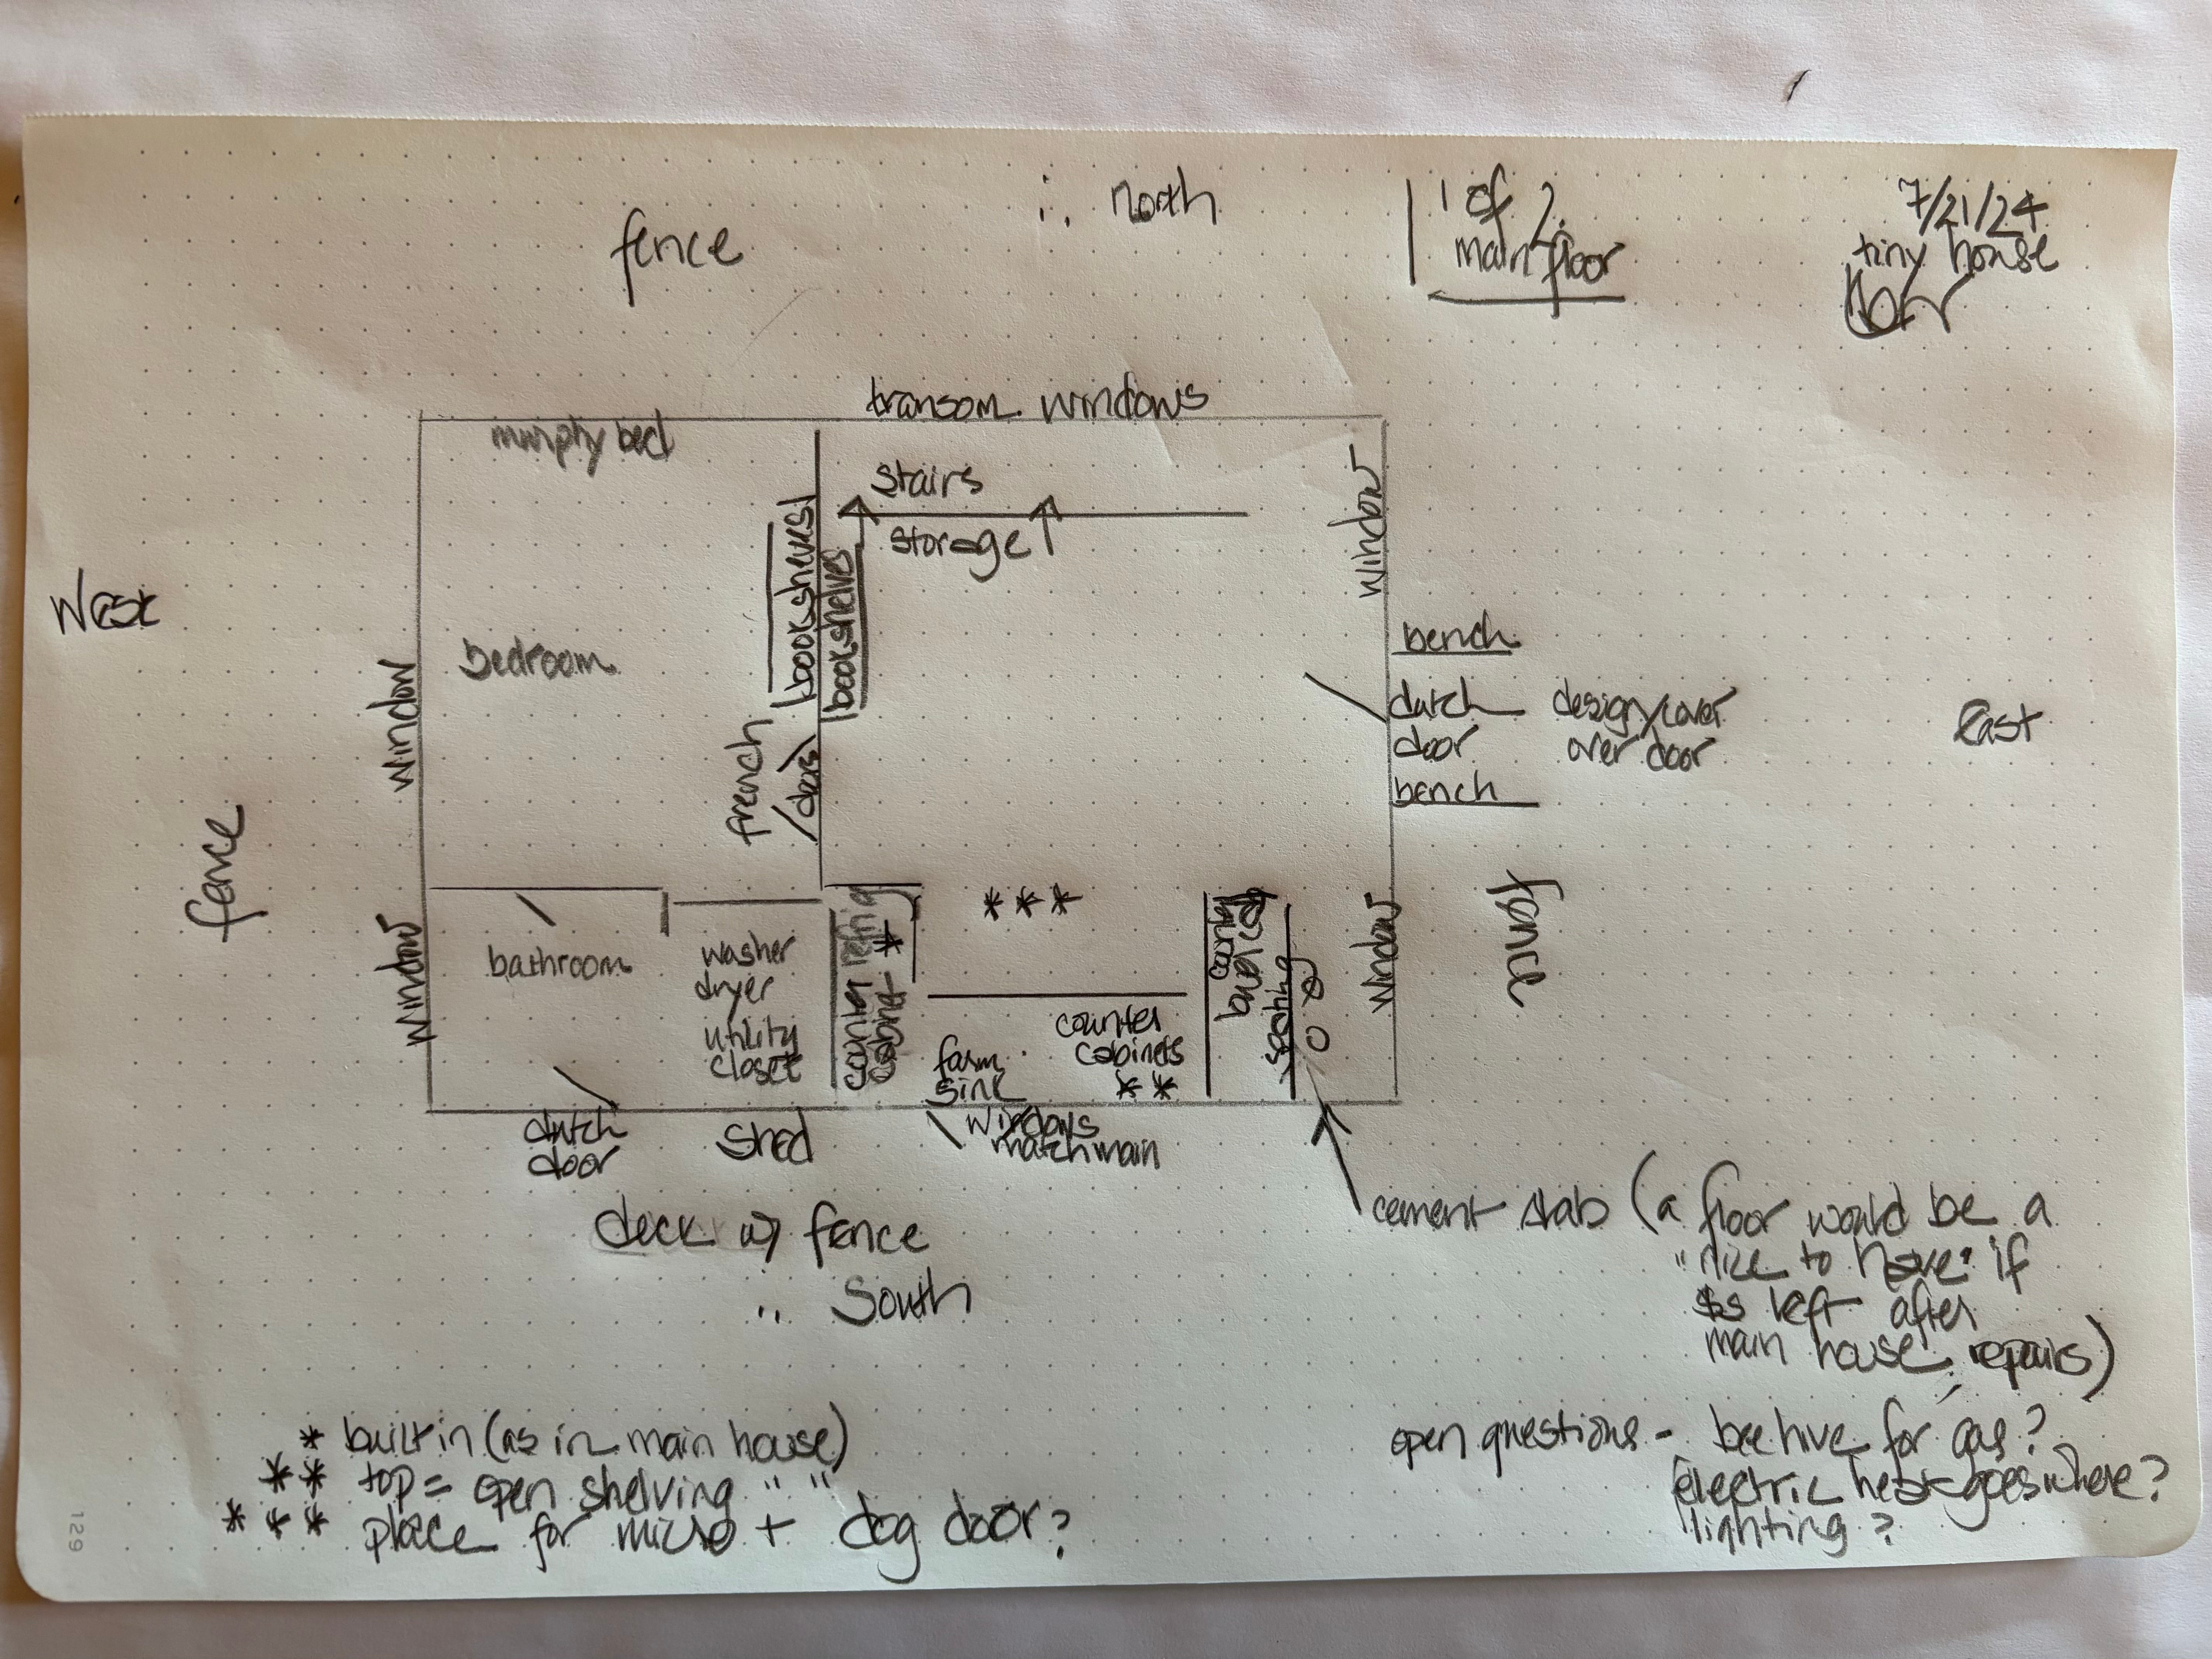 north
fence
1 of 2
main floor
7/21/24
tiny house
transom windows
murphy bed
stairs
storage
bookshelves
bookshelves
window
West
bedroom
window
french
doors
bench
dutch
door
bench
design/cover
over door
East
fence
fence
window
bathroom
washer
dryer
utility
closet
counter refrig
cabinet *
* * *
farm
sink
counter
cabinets
* *
counter
seating
window
dutch
door
shed
windows
match main
deck w/ fence
South
cement slab (a floor would be a
"nice to have" if
$s left after
main house repairs)
* built in (as in main house)
** top = open shelving " "
*** place for micro + dog door?
open questions - beehive for gas?
electric heat goes where?
lighting?
129